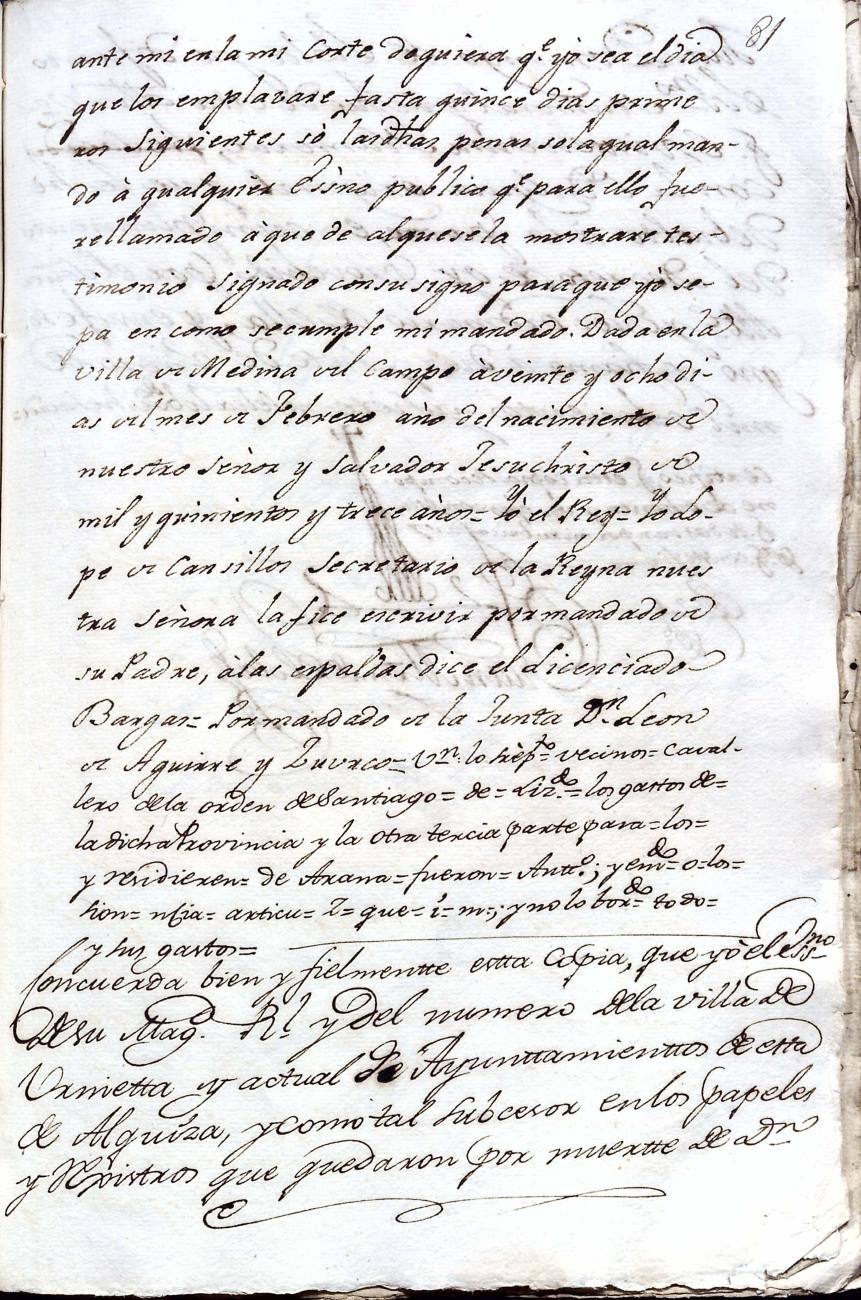 81
ante mi en la mi Corte do quiera q.e yo sea el dia
que los emplazare fasta quince dias prime
ros siguientes sò las dhas penas so la qual man-
do à qualquier Essno publico q.e para ello fue-
re llamado à que de al que se la mostrare tes-
timonio signado con su signo para que yò se-
pa en como se cumple mi mandado. Dada en la
villa de Medina del Campo à veinte y ocho di-
as del mes de Febrero año del nacimiento de
nuestro Señor y Salvador Jesuchristo de
mil y quinientos y trece años= Yò el Rey= Yo Lo-
pe de Cansillos Secretario de la Reyna nues
tra Señora la fice escrivir por mandado de
su Padre, à las espaldas dice el Licenciado
Bargas= Por mandado de la Junta D.n Leon
de Aguirre y Zuvrco= vecinos= Caval-
lero de la orden de Santiago= de= los gastos de=
la dicha Provincia y la otra tercia parte para= los=
y residieren= de Arana= fueron= Antt.o; y em.do= o= los=
sion= ncia= articu= Z= que= i= m=; y no lo bor.do todo=
y sus gastos=
Concuerda bien y fielmentte estta Copia, que yò el Essno
De su Mag.d R.l y del numero de la villa de
Urnietta y actual de Ayunttamientto de estta
de Alquiza, y como tal subcesor en los papeles
y Rexistros que quedaron por muertte de D.n